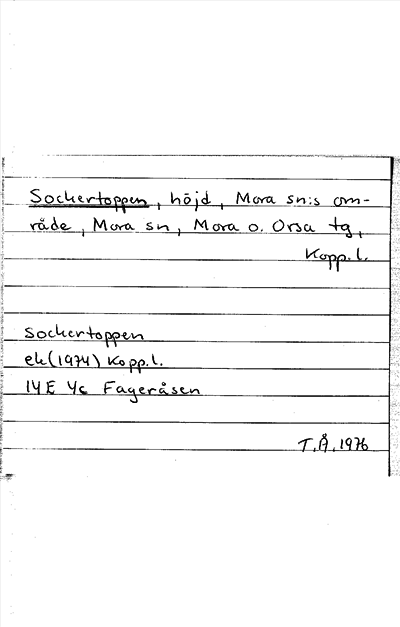 Sockertoppen, höjd, Mora sn:s om-
råde, Mora sn, Mora o. Orsa tg,
Kopp.l.
Sockertoppen
ek(1974) Kopp.l.
14E 4c Fageråsen
T.Å.1976